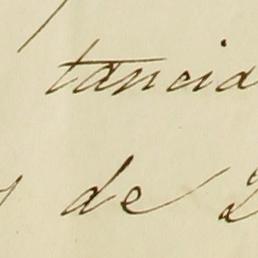 tancid
de